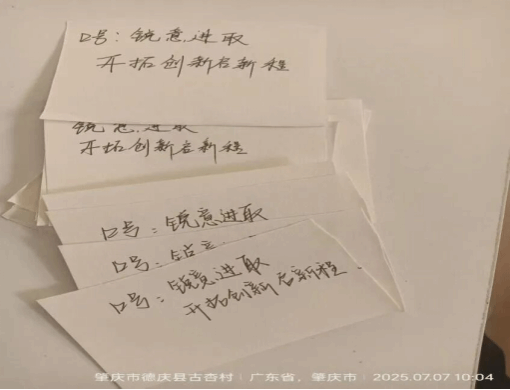 口号：锐意进取
开拓创新启新程
锐意进取
开拓创新启新程
口号：锐意进取
口号：锐意
口号：锐意进取
开拓创新启新程.
肇庆市德庆县古杏村 | 广东省，肇庆市 | 2025.07.07 10:04